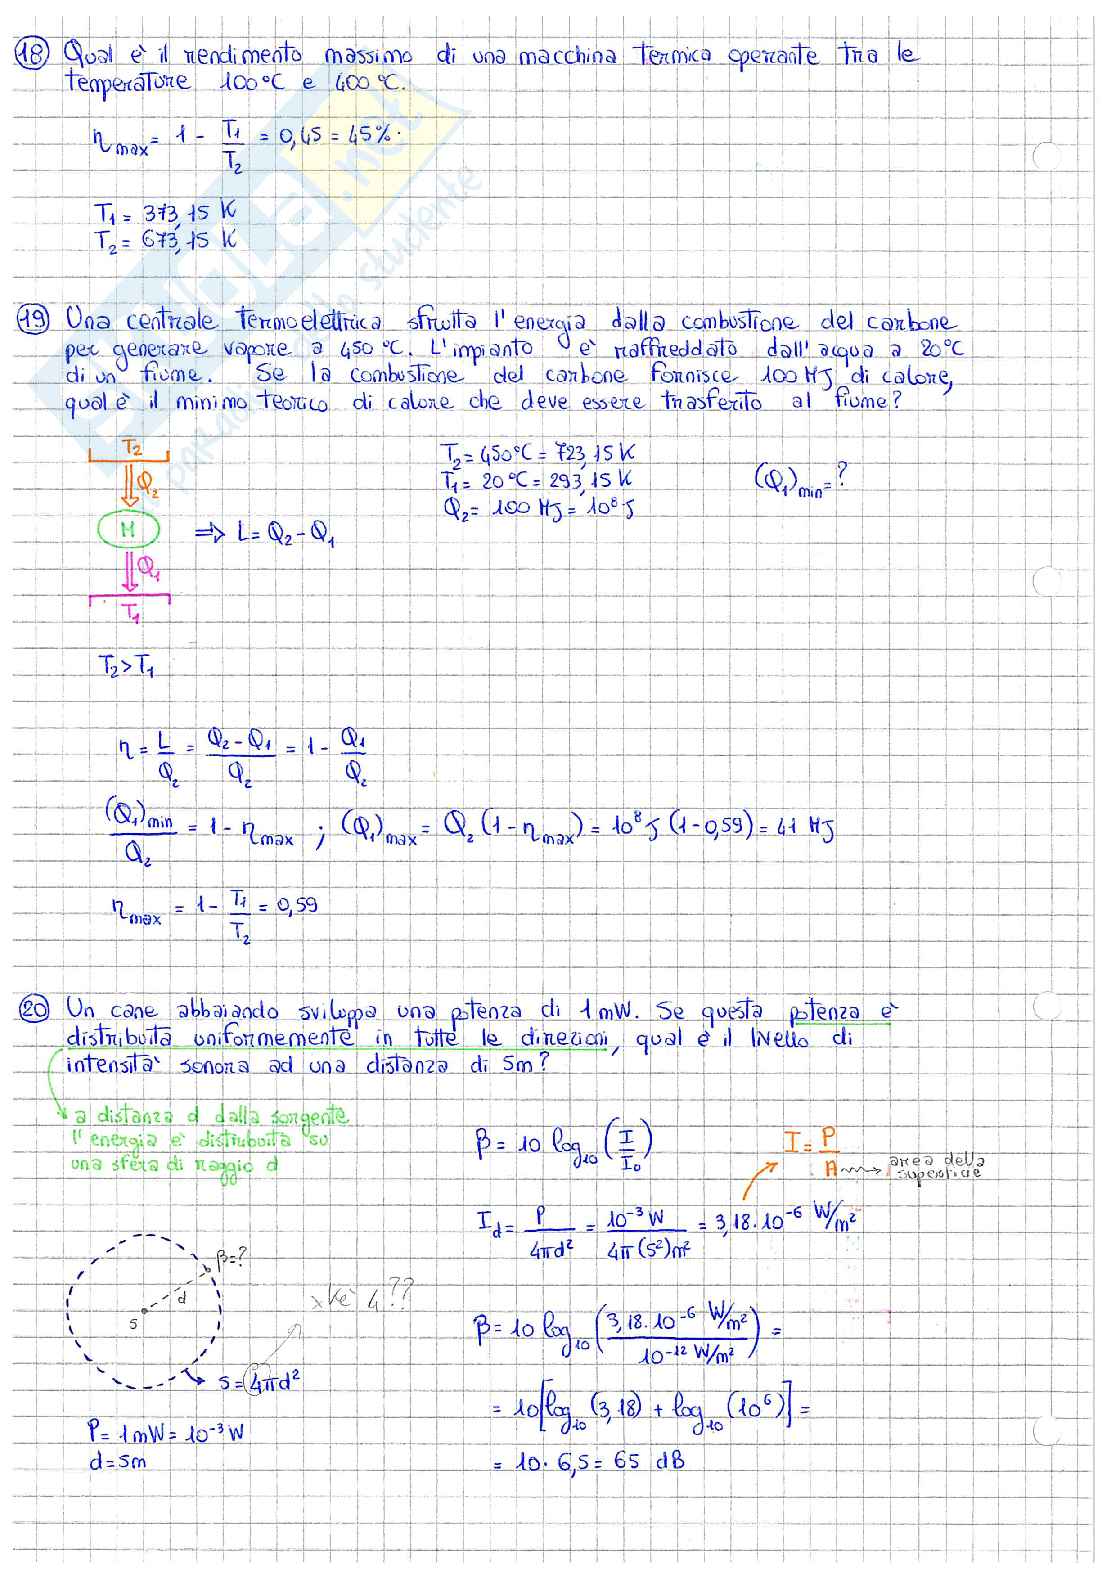 18 Qual è il rendimento massimo di una macchina termica operante tra le
temperature 100°C e 400°C.
η max = 1 - T1/T2 = 0,45 = 45%.
T1 = 373,15 K
T2 = 673,15 K
19 Una centrale termoelettrica sfrutta l'energia dalla combustione del carbone
per generare vapore a 450°C. L'impianto è raffreddato dall'acqua a 20°C
di un fiume. Se la combustione del carbone fornisce 100 MJ di calore,
qual è il minimo teorico di calore che deve essere trasferito al fiume?
T2
Q2
M ⇒ L = Q2 - Q1
Q1
T1
T2 = 450°C = 723,15 K
T1 = 20°C = 293,15 K
Q2 = 100 MJ = 10^8 J
(Q1)min = ?
T2 > T1
η = L/Q2 = (Q2 - Q1)/Q2 = 1 - Q1/Q2
(Q1)min/Q2 = 1 - η max ; (Q1)max = Q2 (1 - η max) = 10^8 J (1 - 0,59) = 41 MJ
η max = 1 - T1/T2 = 0,59
20 Un cane abbaiando sviluppa una potenza di 1 mW. Se questa potenza è
distribuita uniformemente in tutte le direzioni, qual è il livello di
intensità sonora ad una distanza di 5m?
a distanza d dalla sorgente
l'energia è distribuita su
una sfera di raggio d
β = 10 log10 (I/I0)
I = P/A
area della
superficie
Id = P/4πd² = 10^-3 W/4π(5²)m² = 3,18·10^-6 W/m²
β = ?
d
S
xkè 4??
S = 4πd²
P = 1 mW = 10^-3 W
d = 5m
β = 10 log10 (3,18·10^-6 W/m² / 10^-12 W/m²) =
= 10 [log10 (3,18) + log10 (10^6)] =
= 10 · 6,5 = 65 dB